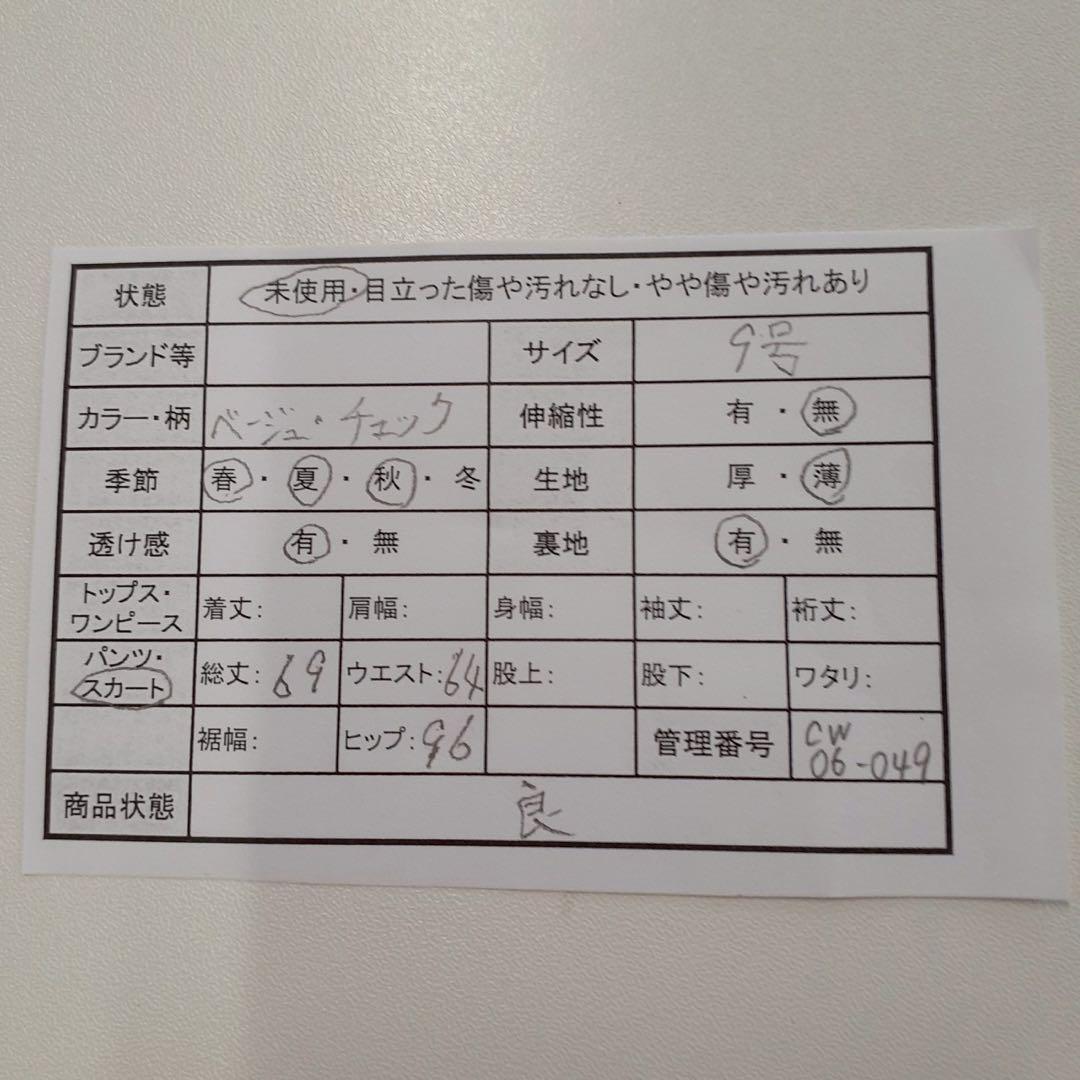 状態 未使用・目立った傷や汚れなし・やや傷や汚れあり
ブランド等 サイズ 9号
カラー・柄 ベージュ・チェック 伸縮性 有・無
季節 春・夏・秋・冬 生地 厚・薄
透け感 有・無 裏地 有・無
トップス・
ワンピース 着丈: 肩幅: 身幅: 袖丈: 裄丈:
パンツ・
スカート 総丈:69 ウエスト:64 股上: 股下: ワタリ:
裾幅: ヒップ:96 管理番号 CW
06-049
商品状態 良